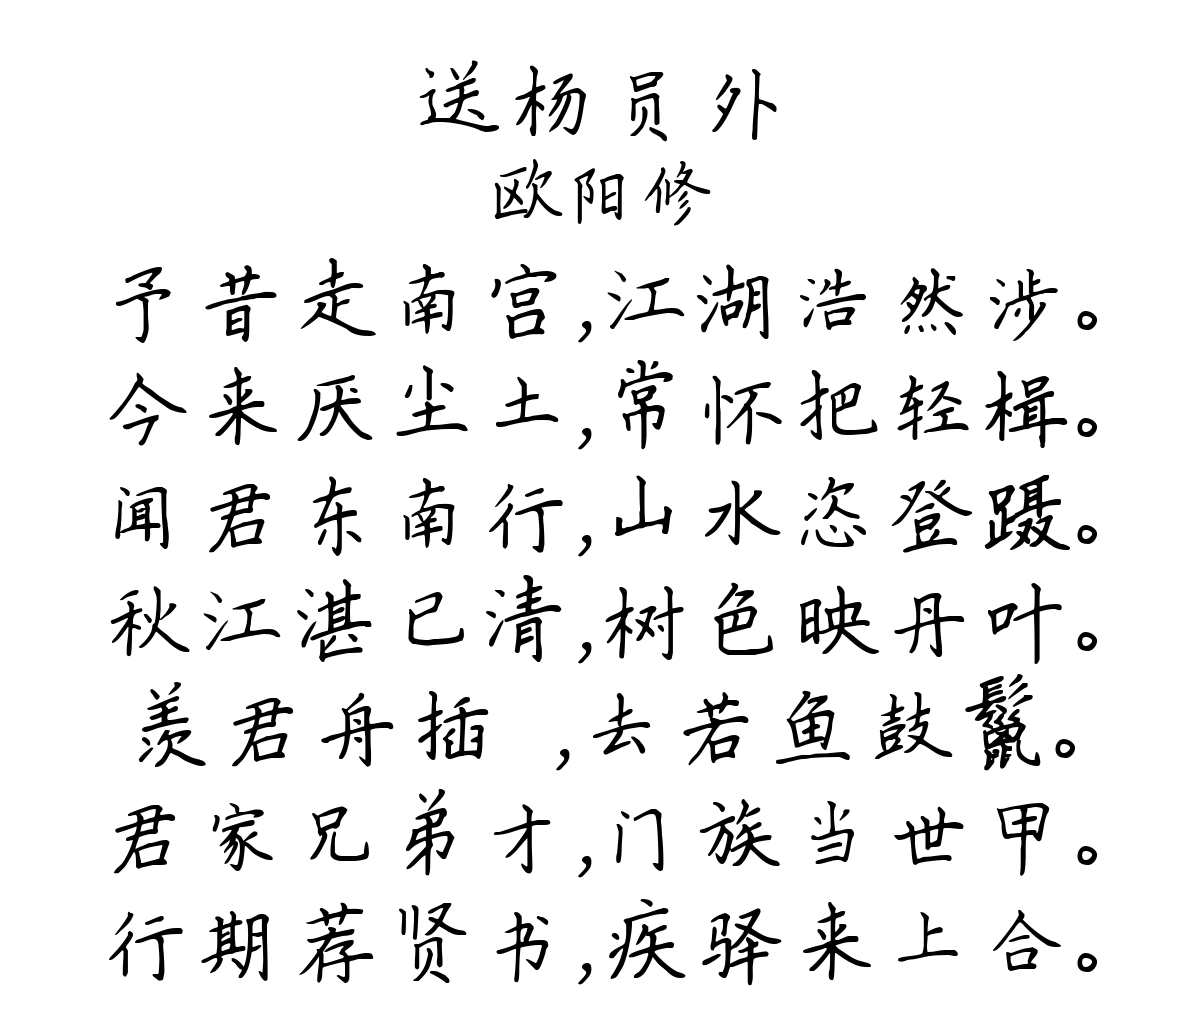 送杨员外
欧阳修
予昔走南宫,江湖浩然涉。
今来厌尘土,常怀把轻楫。
闻君东南行,山水恣登蹑。
秋江湛已清,树色映丹叶。
羡君舟插 ,去若鱼鼓鬣。
君家兄弟才,门族当世甲。
行期荐贤书,疾驿来上合。